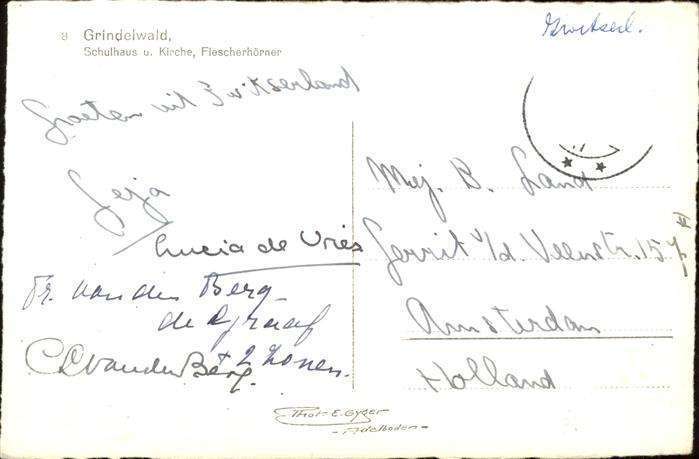 8 Grindelwald,
Schulhaus u. Kirche, Fiescherhörner
Zwitserl.
Groeten uit Zwitserland
Geja
Lucia de Vries
Fr. van den Berg-
de Graaf
C D van den Berg.
+ 2 zonen.
Mej. B. Land
Gerrit v/d. Veenstr. 157 II
Amsterdam
Holland
Phot. E. Gyger
- Adelboden -